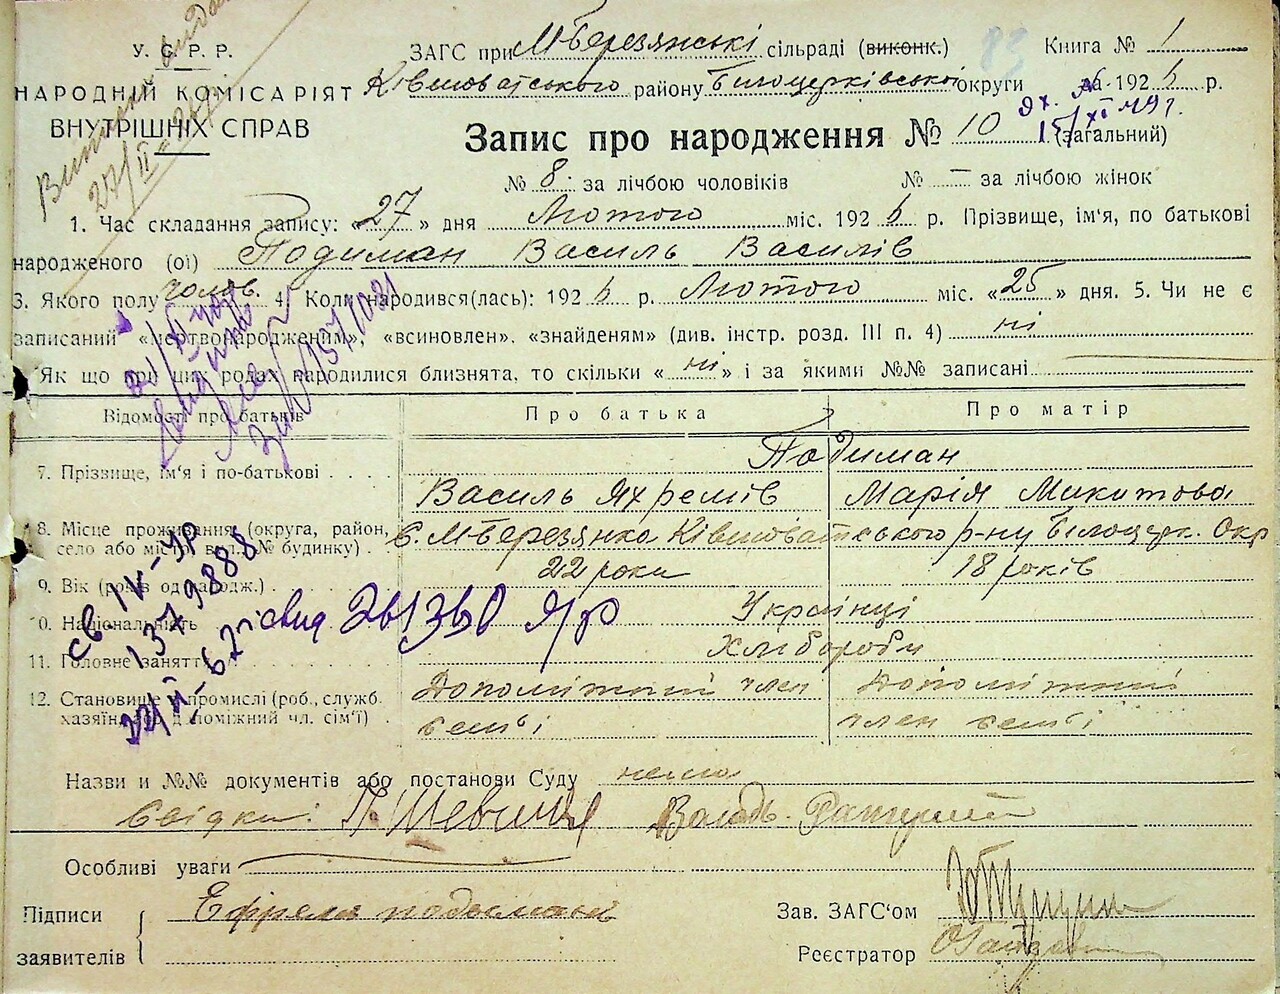 У.С.Р.Р.
НАРОДНІЙ КОМІСАРІЯТ
ВНУТРІШНІХ СПРАВ
ЗАГС при М-Березянські сільраді (виконк.) 83 Книга № 1
Ківшоватського району Білоцерківської округи на 1926 р.
Запис про народження № 10 (загальний)
15/XI 49 г.
27/II-26
№ 8. за лічбою чоловіків № – за лічбою жінок
1. Час складання запису: „27" дня Лютого міс. 1926 р. Прізвище, ім'я, по батькові
народженого (ої) Подиман Василь Василів
3. Якого полу чолов. 4. Коли народився(лась): 1926 р. Лютого міс. «25» дня. 5. Чи не є
записаний «мертвонародженим», «всиновлен», «знайденям» (див. інстр. розд. III п. 4) ні
Як що при цих родах народилися близнята, то скільки « ні » і за якими №№ записані
Відомості про батьків Про батька Про матір
7. Прізвище, ім'я і по-батькові Подиман
Василь Яхремів Марія Микитова
8. Місце проживання (округа, район, село або місто, вул., № будинку) с. М-Березянка Ківшоватського р-ну Білоцерк. Окр
9. Вік (років од народж.) 22 роки 18 років
10. Національність Українці
11. Головне заняття Хлібороби
12. Становище в промислі (роб., служб. хазяїн або допоміжний чл. сім'ї) Допоміжний член семьі Допоміжний член семьі
1379888
Назви и №№ документів або постанови Суду нема
Свідки: П. Шевчиня
Особливі уваги
Підписи заявителів Ефрем подиман
Зав. ЗАГС'ом
Реєстратор